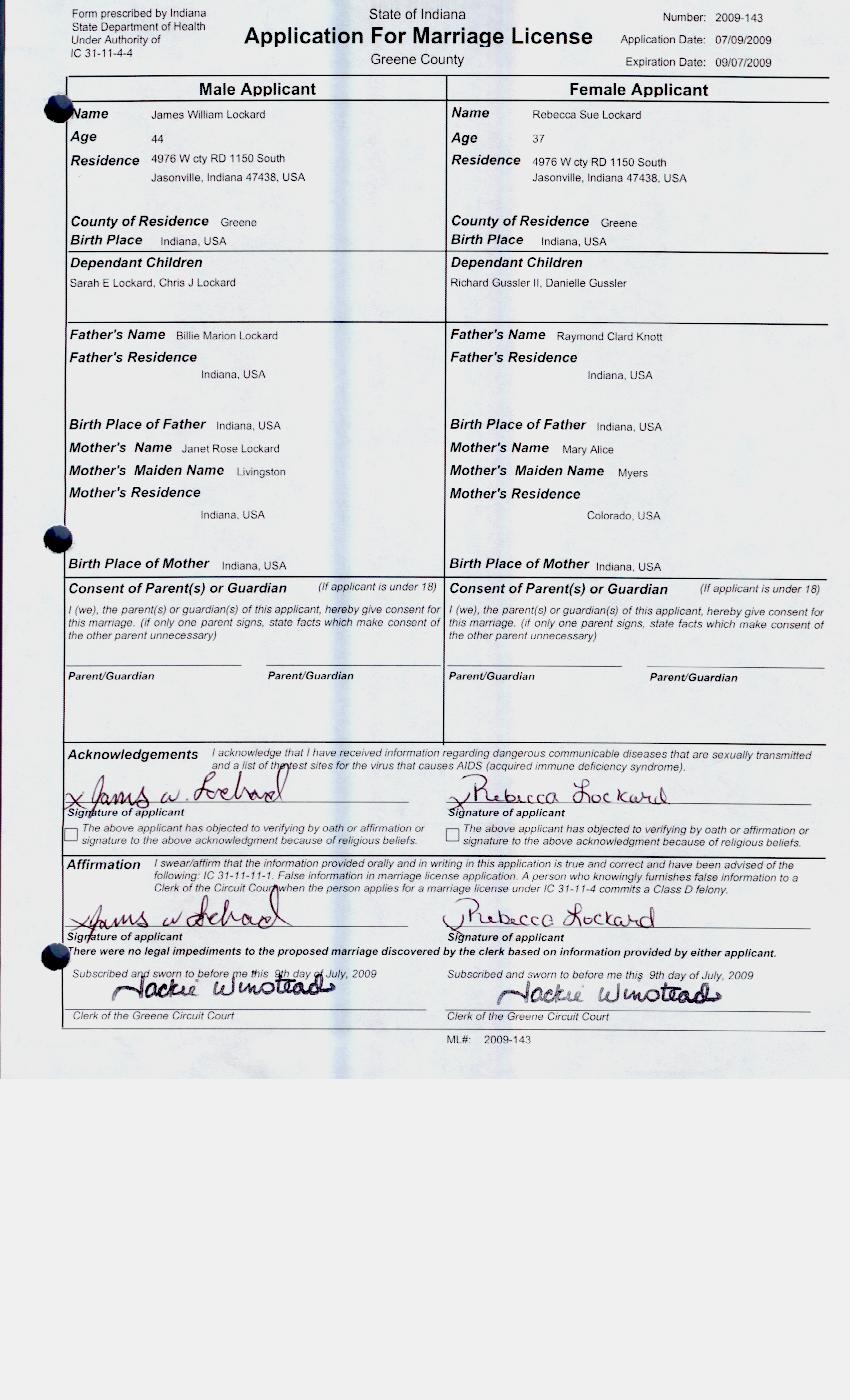 Form prescribed by Indiana
State Department of Health
Under Authority of
IC 31-11-4-4
State of Indiana
Application For Marriage License
Greene County
Number: 2009-143
Application Date: 07/09/2009
Expiration Date: 09/07/2009
Male Applicant
Name James William Lockard
Age 44
Residence 4976 W cty RD 1150 South
Jasonville, Indiana 47438, USA
County of Residence Greene
Birth Place Indiana, USA
Dependant Children
Sarah E Lockard, Chris J Lockard
Father's Name Billie Marion Lockard
Father's Residence
Indiana, USA
Birth Place of Father Indiana, USA
Mother's Name Janet Rose Lockard
Mother's Maiden Name Livingston
Mother's Residence
Indiana, USA
Birth Place of Mother Indiana, USA
Consent of Parent(s) or Guardian (If applicant is under 18)
I (we), the parent(s) or guardian(s) of this applicant, hereby give consent for
this marriage. (if only one parent signs, state facts which make consent of
the other parent unnecessary)
Parent/Guardian Parent/Guardian
Female Applicant
Name Rebecca Sue Lockard
Age 37
Residence 4976 W cty RD 1150 South
Jasonville, Indiana 47438, USA
County of Residence Greene
Birth Place Indiana, USA
Dependant Children
Richard Gussler II, Danielle Gussler
Father's Name Raymond Clard Knott
Father's Residence
Indiana, USA
Birth Place of Father Indiana, USA
Mother's Name Mary Alice
Mother's Maiden Name Myers
Mother's Residence
Colorado, USA
Birth Place of Mother Indiana, USA
Consent of Parent(s) or Guardian (If applicant is under 18)
I (we), the parent(s) or guardian(s) of this applicant, hereby give consent for
this marriage. (if only one parent signs, state facts which make consent of
the other parent unnecessary)
Parent/Guardian Parent/Guardian
Acknowledgements I acknowledge that I have received information regarding dangerous communicable diseases that are sexually transmitted
and a list of the test sites for the virus that causes AIDS (acquired immune deficiency syndrome).
x James W. Lockard
Signature of applicant
The above applicant has objected to verifying by oath or affirmation or
signature to the above acknowledgment because of religious beliefs.
x Rebecca Lockard
Signature of applicant
The above applicant has objected to verifying by oath or affirmation or
signature to the above acknowledgment because of religious beliefs.
Affirmation I swear/affirm that the information provided orally and in writing in this application is true and correct and have been advised of the
following: IC 31-11-11-1. False information in marriage license application. A person who knowingly furnishes false information to a
Clerk of the Circuit Court when the person applies for a marriage license under IC 31-11-4 commits a Class D felony.
x James W Lockard
Signature of applicant
x Rebecca Lockard
Signature of applicant
There were no legal impediments to the proposed marriage discovered by the clerk based on information provided by either applicant.
Subscribed and sworn to before me this 9th day of July, 2009
Jackie Winstead
Clerk of the Greene Circuit Court
Subscribed and sworn to before me this 9th day of July, 2009
Jackie Winstead
Clerk of the Greene Circuit Court
ML#: 2009-143